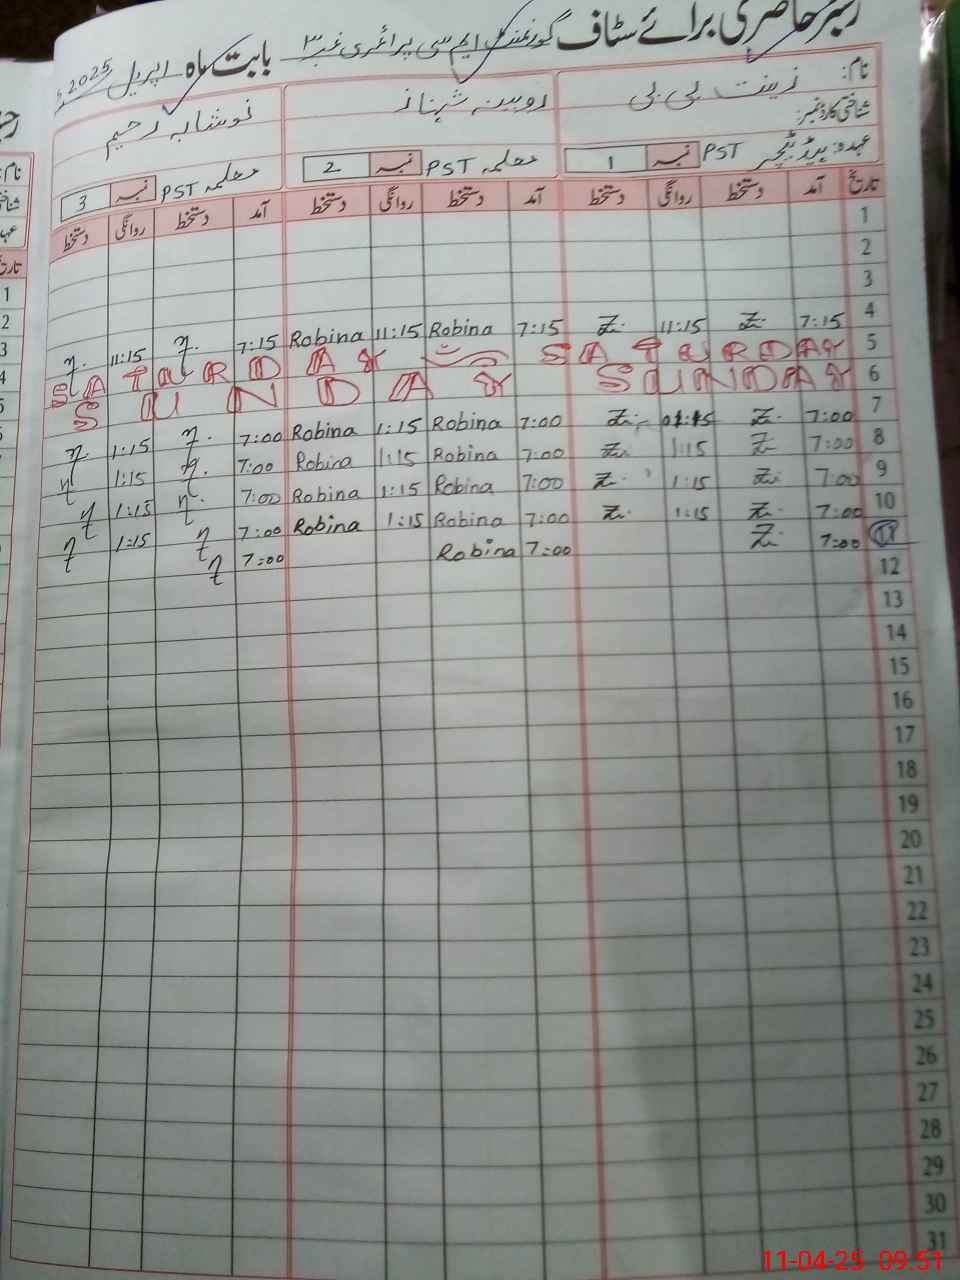 رجسٹر حاضری برائے سٹاف گورنمنٹ ایم سی پرائمری نمبر ۳ بابت ماہ اپریل 2025ء
نام: زینت بی بی روبینہ شہناز نوشابہ رحیم
شناختی کارڈ نمبر:
عہدہ: ہیڈ ٹیچر PST نمبر 1 معلمہ PST نمبر 2 معلمہ PST نمبر 3
تاریخ آمد دستخط روانگی دستخط آمد دستخط روانگی دستخط آمد دستخط روانگی دستخط
1
2
3
4 7:15 Z. 11:15 Z. 7:15 Robina 11:15 Robina 7:15 η. 11:15 η.
5 SATURDAY SATURDAY
6 SUNDAY SUNDAY
7 7:00 Z. 01:15 Z. 7:00 Robina 1:15 Robina 7:00 η. 1:15 η.
8 7:00 Z. 1:15 Z. 7:00 Robina 1:15 Robina 7:00 η. 1:15 η
9 7:00 Z. 1:15 Z. 7:00 Robina 1:15 Robina 7:00 η. 1:15 η
10 7:00 Z. 1:15 Z. 7:00 Robina 1:15 Robina 7:00 η 1:15 η
11 7:00 Z. 7:00 Robina 7:00 η
12
13
14
15
16
17
18
19
20
21
22
23
24
25
26
27
28
29
30
31
11-04-25 09:51